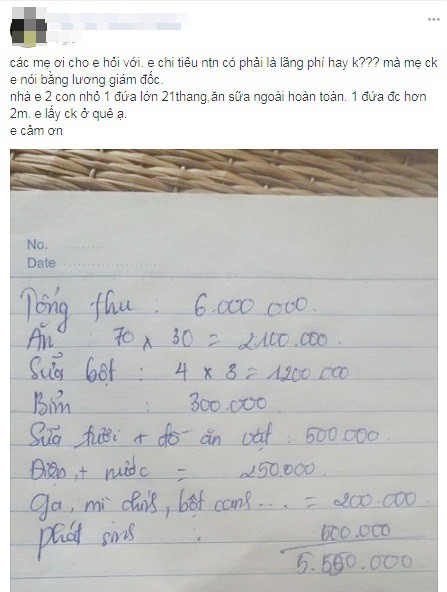 các mẹ ơi cho e hỏi với. e chi tiêu ntn có phải là lãng phí hay k??? mà mẹ ck
e nói bằng lương giám đốc.
nhà e 2 con nhỏ 1 đứa lớn 21thang,ăn sữa ngoài hoàn toàn. 1 đứa đc hơn
2m. e lấy ck ở quê ạ.
e cảm ơn
No.
Date
Tổng thu : 6.000.000.
Ăn : 70 x 30 = 2100.000.
Sữa bột : 4 x 3 = 1200.000
Bỉm : 300.000
Sữa tươi + đồ ăn vặt : 500.000
Điện + nước = 250.000
Ga, mì chính, bột canh... = 200.000
phát sinh : 500.000
5.550.000.